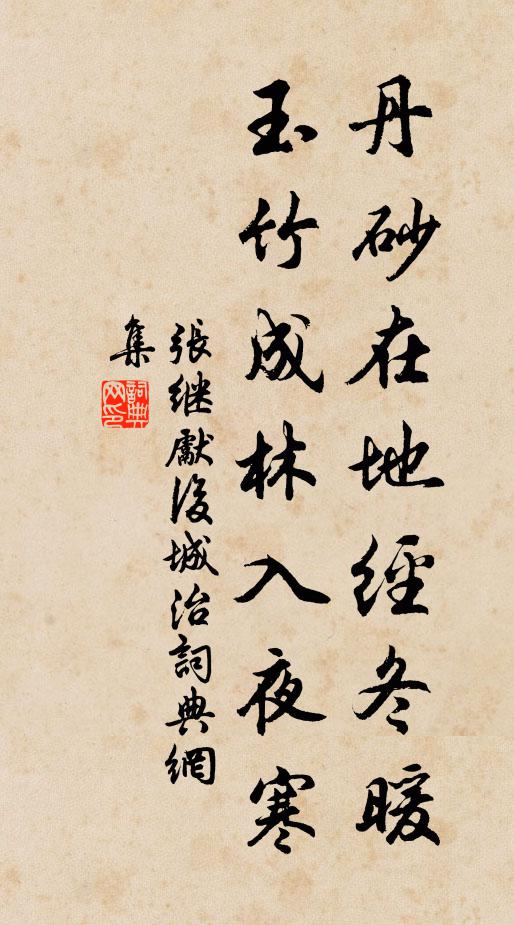 丹砂在地經冬暖
玉竹成林入夜寒
張继獻後城治詞典網
集
詞典網印